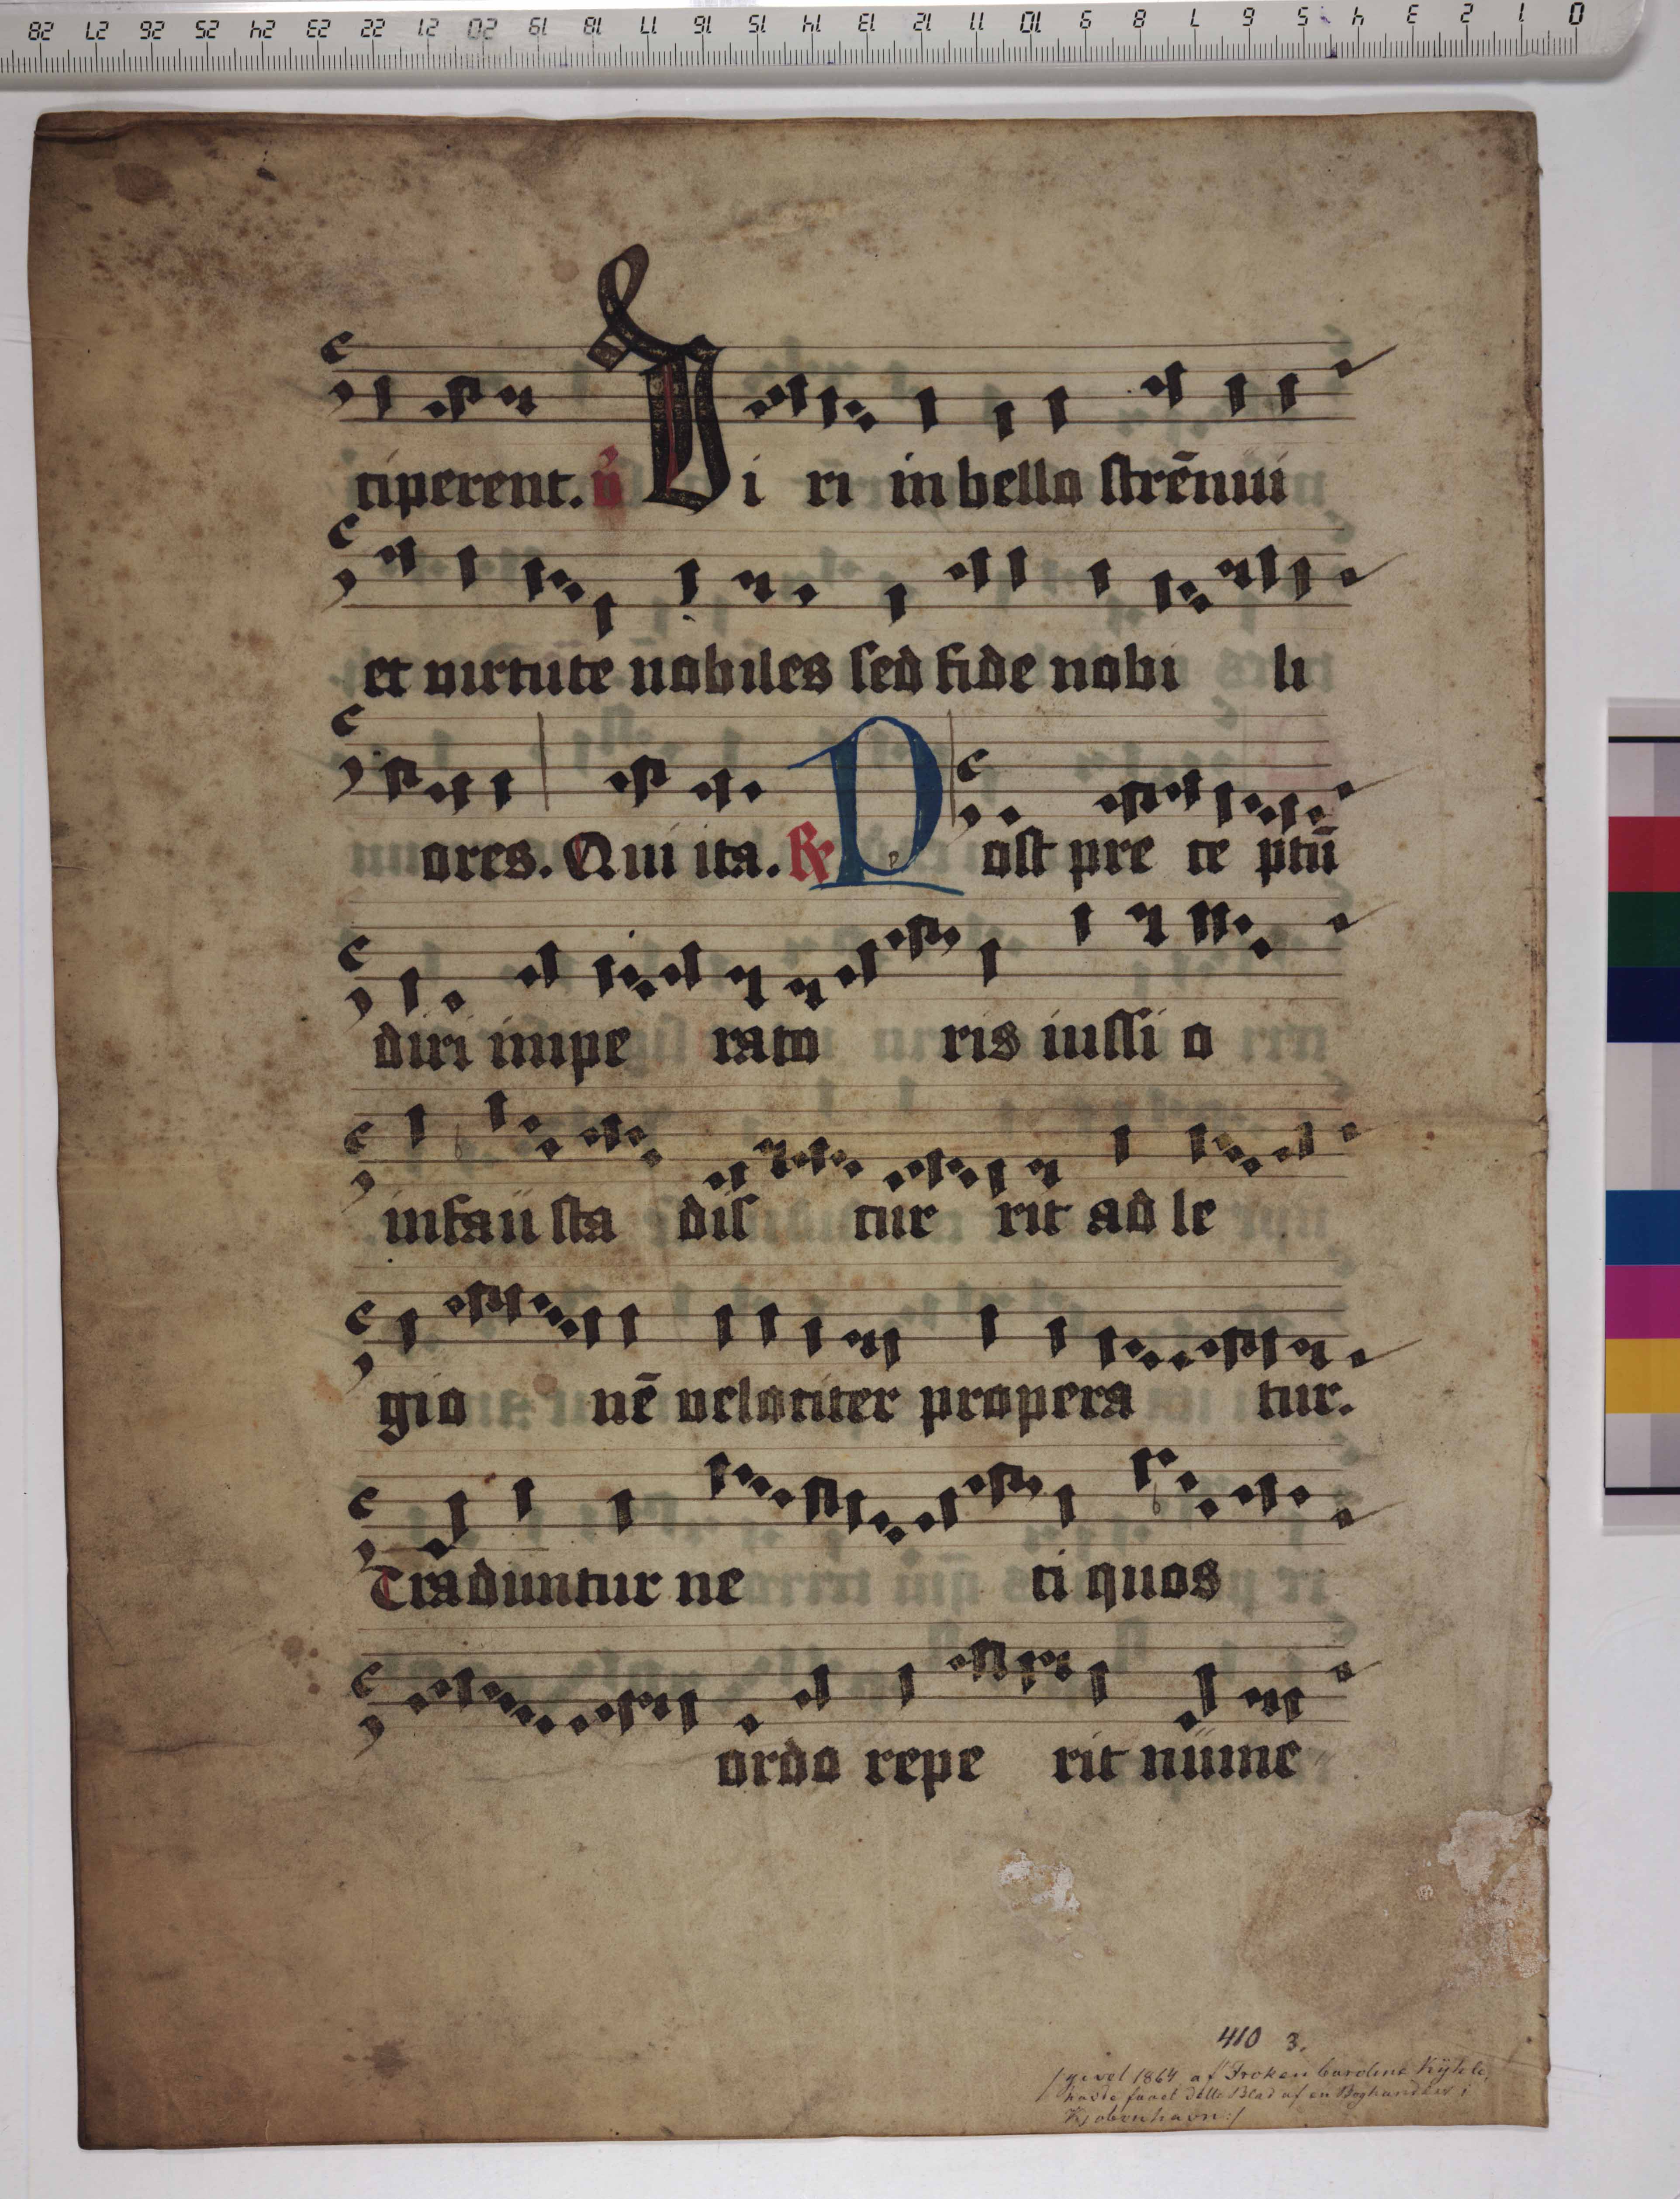 28 27 26 25 24 23 22 21 20 19 18 17 16 15 14 13 12 11 10 9 8 7 6 5 4 3 2 1 0
ciperent. v̉ Vi ri in bello strēnui
et uirtute nobiles sed fide nobi li
ores. Qui ita. R̷ Post pre ce ptū
diri impe rato ris iussi o
infau sta dis cur rit ad le
gio nē uelociter propera tur.
Traduntur ne ci quos
ordo repe rit nume
410 3.
/givet 1864 af Frøken Caroline
havde faaet dette Blad af en Boghandler i
Kjøbenhavn:/